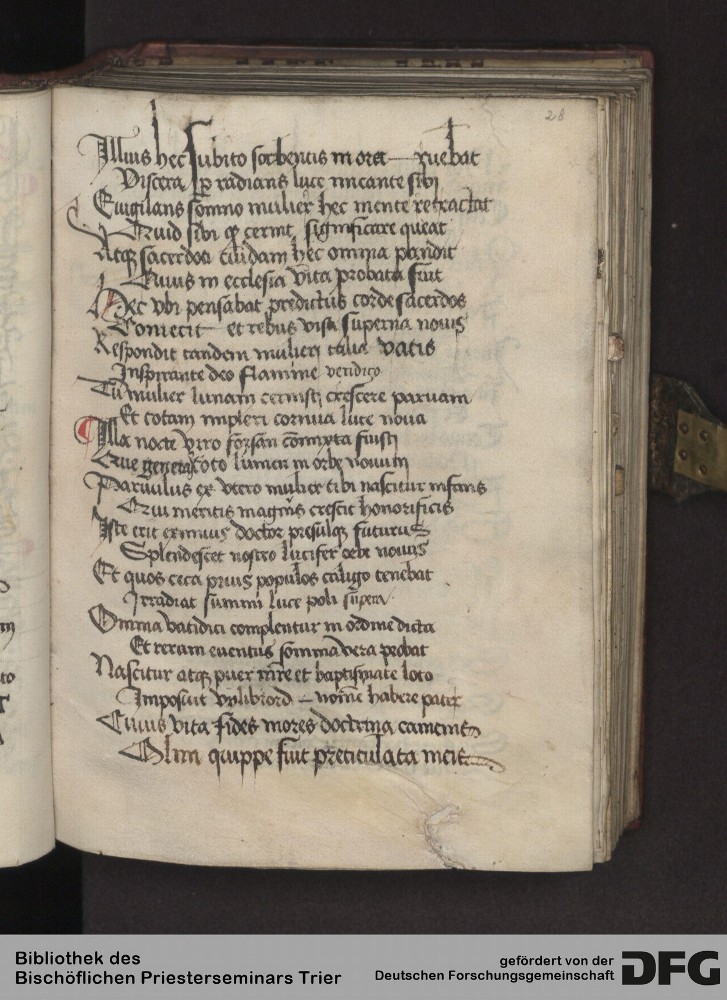 28
Illius hec subito sorbentis in ora ruebat
Viscera p radians luce micante sibi
Euigilans somno mulier hec mente retractat
Quid sibi q cernit significare queat
Atq sacerdoti cuidam hec omnia pandit
Cuius in ecclesia vita probata fuit
Hec vbi pensabat predictus corde sacerdos
Coniecit et rebus visa superna nouis
Respondit tandem mulieri talia vatis
Inspirante deo flamine veridico
Tu mulier lunam cernisti crescere paruam
Et totam impleri cornua luce noua
Illa nocte viro forsan cōmixta fuisti
Que generat toto lumen in orbe nouum
Paruulus ex vtero mulier tibi nascitur infans
Qui meritis magnis crescit honorificis
Iste erit eximius doctor presulq futurus
Splendescet nostro lucifer orbe nouus
Et quos ceca prius populos caligo tenebat
Irradiat summi luce poli supera
Omnia vatidici complentur in ordine dicta
Et rerum euentus somnia vera probat
Nascitur atq puer mre et baptismate loto
Imposuit vvilibrord nomē habere pater
Cuius vita fides mores doctrina
Olim quippe fuit pretitulata
Bibliothek des
Bischöflichen Priesterseminars Trier
gefördert von der
Deutschen Forschungsgemeinschaft
DFG